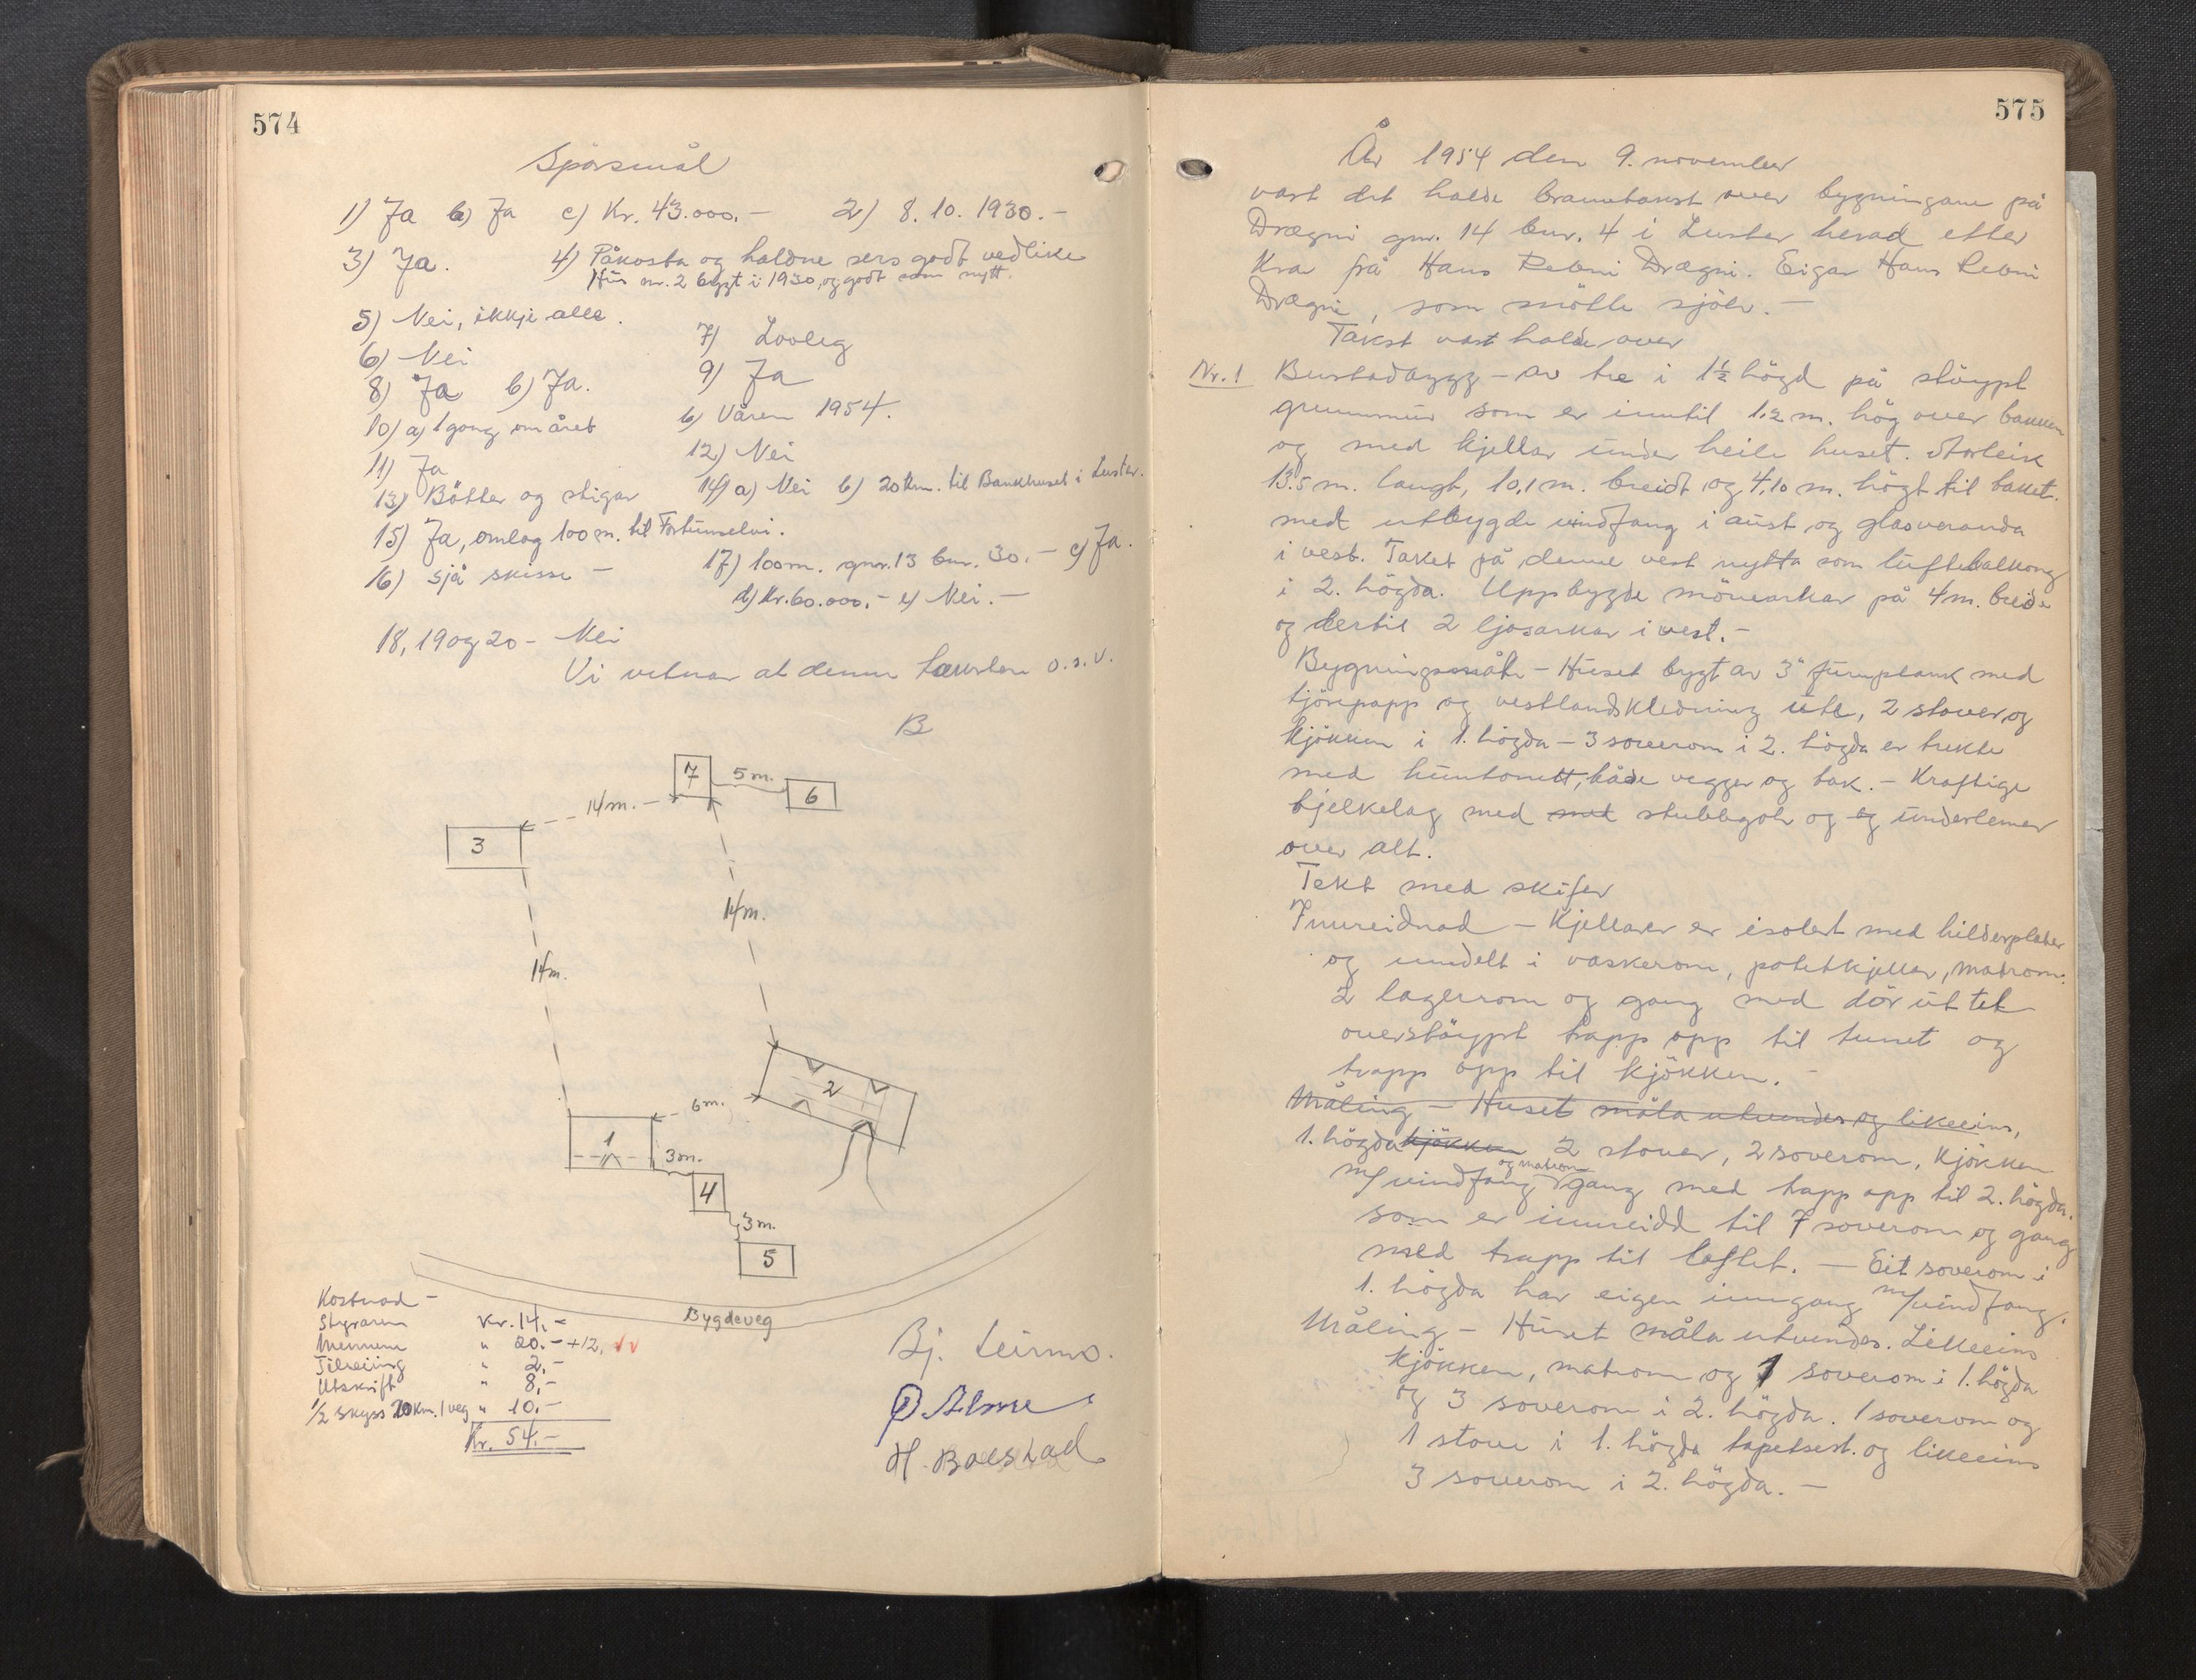 574
Spörsmål
1) Ja b) Ja c) Kr. 43.000.- 2) 8.10.1930.-
3) Ja. 4) Påkosta og haldne sers godt vedlike
Hus nr. 2 bygt i 1930, og godt som nytt.
5) Nei, ikkje alle.
6) Nei 7) Lovleg
8) Ja b) Ja. 9) Ja
10) a) 1 gong om året b) Våren 1954.
11) Ja 12) Nei
13) Bötter og stigar 14) a) Nei b) 20 km. til Bankhuset i Luster.
15) Ja, omlag 100 m. til Fortunselvi.
16) Sjå skisse - 17) 100 m. gnr. 13 bnr. 30.- c) Ja.
d) Kr. 60.000.- e) Nei.-
18, 19 og 20 - Nei
Vi vitnar at denne taksten o.s.v.
B
7 5 m. 6
14 m.
3
14 m.
14 m.
2
6 m.
1
3 m.
4
3 m.
5
Bygdeveg
Kostnad -
Styraren Kr. 14.-
Mennene " 20.- +12,
Tilreiing " 2,-
Utskrift " 8,-
1/2 Skyss 20 km. 1 veg " 10.-
Kr. 54.-
Bj. Leirmo.
O. Alme
H. Bolstad
575
År 1954 den 9. november
vart det halde branntakst over bygningane på
Drægni gnr. 14 bnr. 4 i Luster herad etter
Krav frå Hans Rebni Drægni. Eigar Hans Rebni
Drægni, som mötte sjölv.-
Takst vart halde over
Nr. 1 Bustadbygg - av tre i 1½ högd på stöypt
grunnmur som er inntil 1.2 m. hög over bakken
og med kjellar under heile huset. Storleik
13.5 m. langt, 10,1 m. breidt og 4,10 m. högt til taket.
med utbygde vindfang i aust og glasveranda
i vest. Taket på denne vert nytta som luftebalkong
i 2. högda. Uppbygde mönearkar på 4 m. breide
og dertil 2 ljosarkar i vest.-
Bygningsmåte - Huset bygt av 3" furuplank med
tjörepapp og vestlandskledning ute, 2 stover og
kjökken i 1. högda - 3 soverom i 2. högda er trekte
med huntonett, både vegger og tak. - Kraftige
bjelkelag med met stubbgolv og og underlemer
over alt.
Tekt med skifer
Innreidnad - Kjellaren er isolert med hilderplater
og inndelt i vaskerom, potetkjeller, matrom.
2 lagerrom og gang med dör ut til
overstöypt trapp opp til tunet og
trapp opp til kjökken.-
Måling - Huset måla utvendes og likeeins,
1. högda kjökken 2 stover, 2 soverom, kjökken
og matrom
m/vindfang gang med trapp opp til 2. högda.
som er innreidd til 7 soverom og gang
med trapp til loftet. - Eit soverom i
1. högda har eigen inngang m/vindfang.
Måling - Huset måla utvendes. Likeeins
kjökken, matrom og 1 soverom i 1. högda
og 3 soverom i 2. högda. 1 soverom og
1 stove i 1. högda tapetsert. og likeeins
3 soverom i 2. högda.-